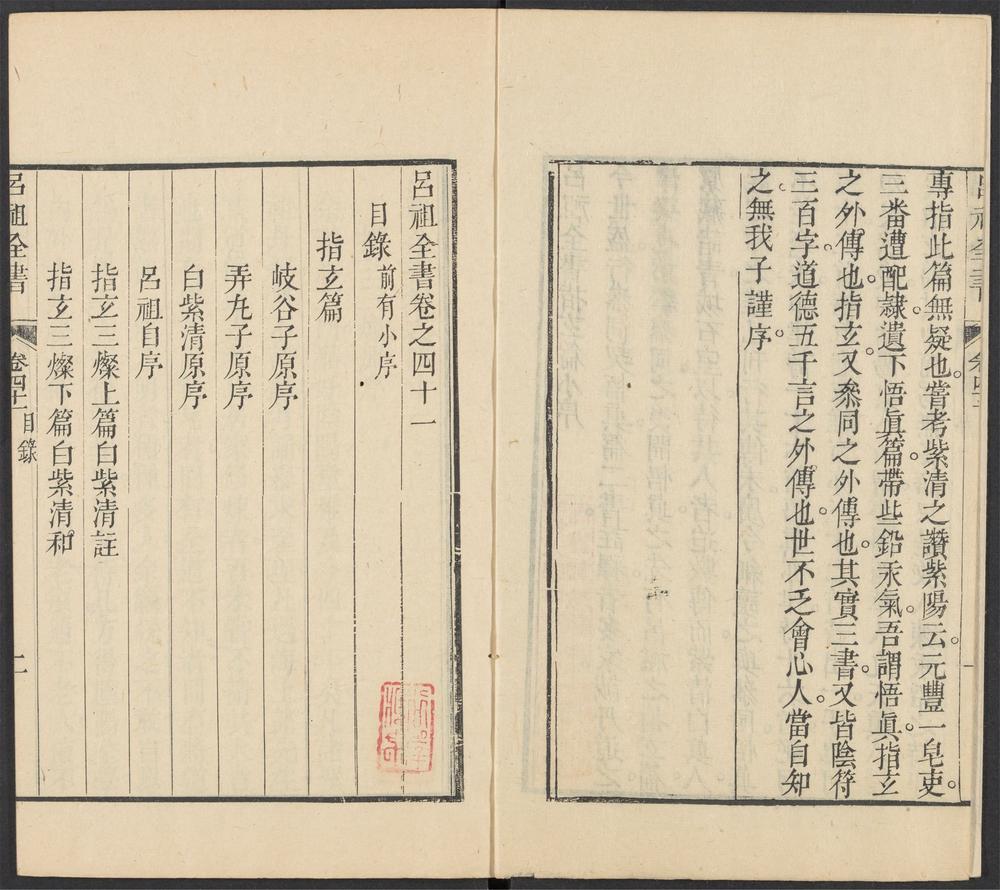 呂祖全書
專指此篇無疑也。嘗考紫清之讚紫陽云。元豐一皂吏。
三番遭配隸。遺下悟眞篇。帶些鉛汞氣。吾謂悟眞。指玄
之外傳也。指玄。又叅同之外傳也。其實三書。又皆陰符
三百字。道德五千言之外傳也。世不乏會心人。當自知
之。無我子謹序。
呂祖全書卷之四十一
目錄前有小序
指玄篇
岐谷子原序
弄丸子原序
白紫清原序
呂祖自序
指玄三燦上篇白紫清註
指玄三燦下篇白紫清和
呂祖全書
卷四十一目錄
一